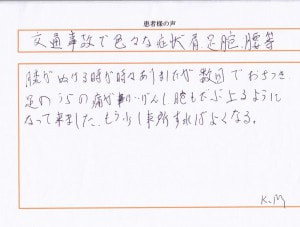 患者様の声
交通事故で色々な症状肩足腕、腰等
膝がぬける時が時々ありましたが数回でおちつき
足のうらの痛が軽げんし腕もだいぶ上るように
なって来ました、もう少し来所すればよくなる。
K.M